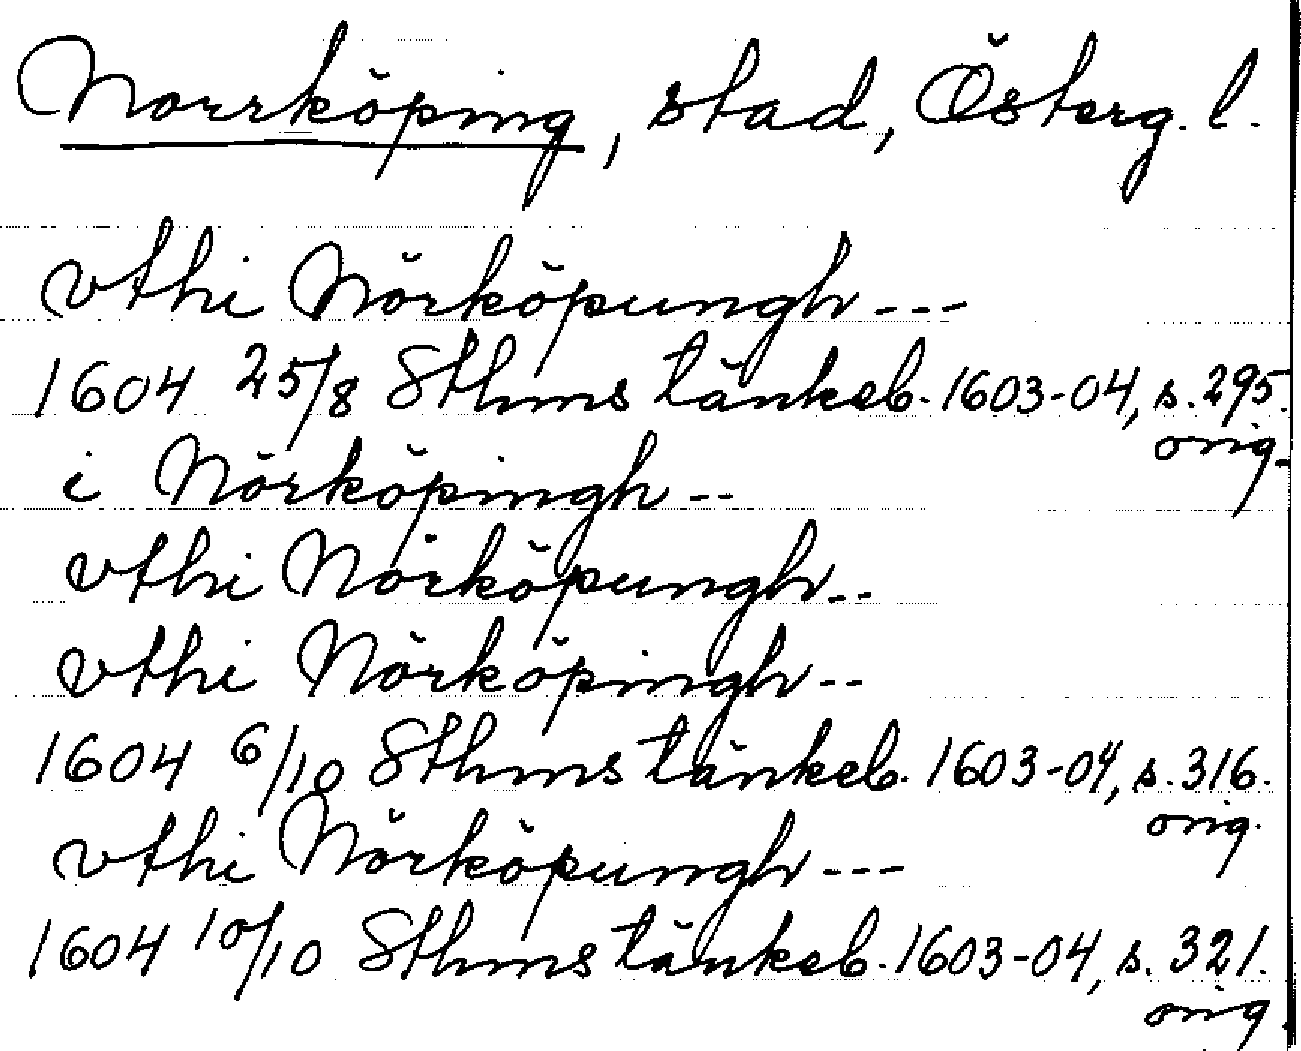 Norrköping, stad, Österg. l.
vthi Nörköpungh ---
1604 25/8 Sthms tänkeb. 1603-04, s. 295.
orig.
i Nörköpingh --
vthi Nörköpungh --
vthi Nörköpingh --
1604 6/10 Sthms tänkeb. 1603-04, s. 316.
orig.
vthi Nörköpungh ---
1604 10/10 Sthms tänkeb. 1603-04, s. 321.
orig.